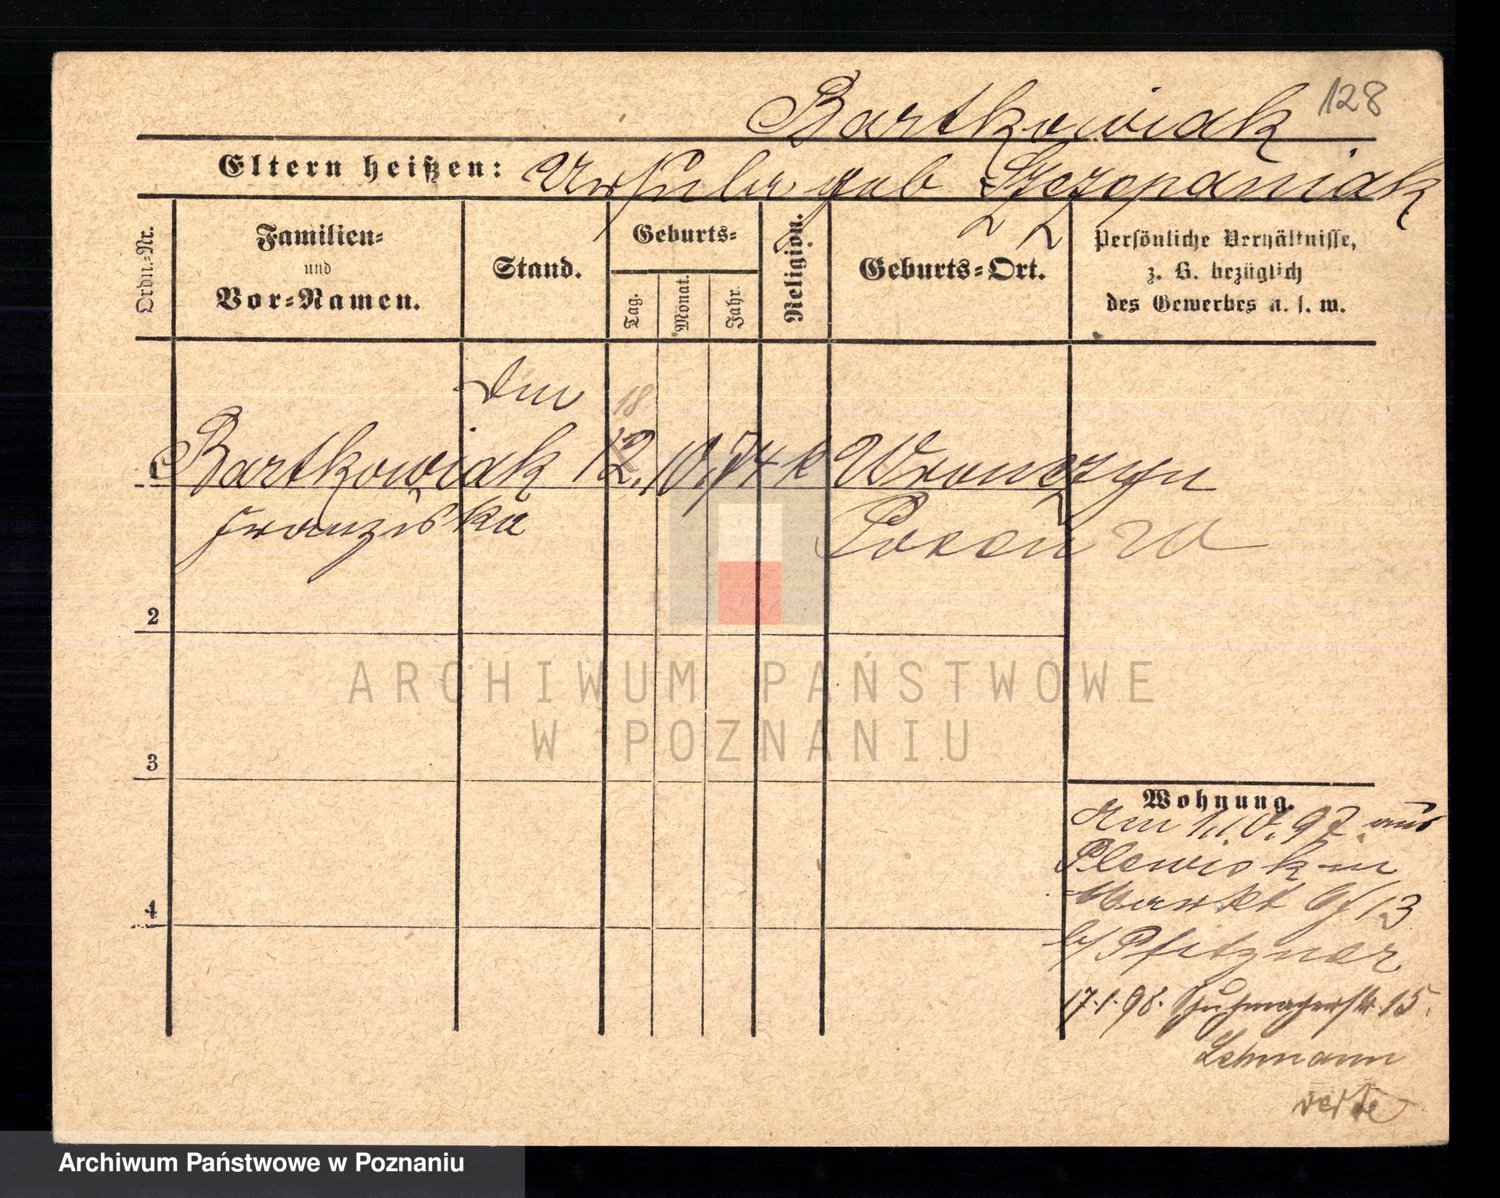 Bartkowiak 128
Eltern heißen: Ursula geb Szczepaniak
Ordn.-Nr.
Familien-
und
Vor-Namen.
Stand.
Geburts-
Tag.
Monat.
Jahr.
Religion.
Geburts-Ort.
Persönliche Verhältnisse,
z. B. bezüglich
des Gewerbes u. s. w.
18
Bartkowiak 12. 10. 74 k Wronczyn
Franziska Posen W
2
3
4
Wohnung.
Am 1.10.97. aus
Plewisk in
Markt 9/13
b/ Pfitzner
17.1.98. Schuhmacherstr. 15.
Lehmann
verte
ARCHIWUM PAŃSTWOWE
W POZNANIU
Archiwum Państwowe w Poznaniu